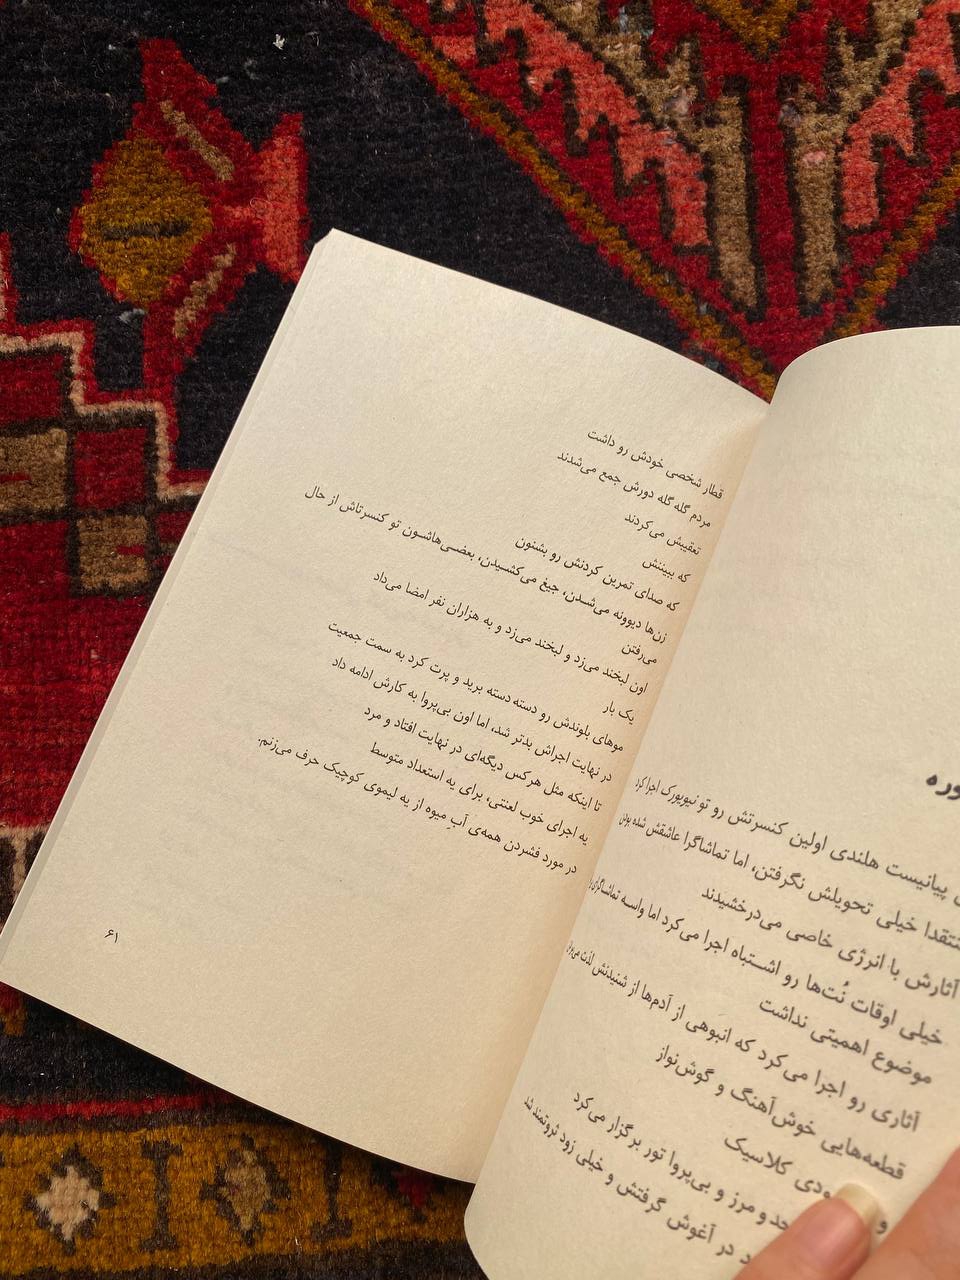 وره
پیانیست هلندی اولین کنسرتش رو تو نیویورک اجرا کرد
منتقدا خیلی تحویلش نگرفتن، اما تماشاگرا عاشقش شده بودن
آثارش با انرژی خاصی می‌درخشیدند
خیلی اوقات نُت‌ها رو اشتباه اجرا می‌کرد اما واسه تماشاگرای
موضوع اهمیتی نداشت
آثاری رو اجرا می‌کرد که انبوهی از آدم‌ها از شنیدنش لذت می‌بردن
قطعه‌هایی خوش‌آهنگ و گوش‌نواز
و ودی کلاسیک
حد و مرز و بی‌پروا تور برگزار می‌کرد
د در آغوش گرفتش و خیلی زود ثروتمند شد
قطار شخصی خودش رو داشت
مردم گله گله دورش جمع می‌شدند
تعقیبش می‌کردند
که ببیننش
که صدای تمرین کردنش رو بشنون
زن‌ها دیوونه می‌شدن، جیغ می‌کشیدن، بعضی‌هاشون تو کنسرتاش از حال
می‌رفتن
اون لبخند می‌زد و لبخند می‌زد و به هزاران نفر امضا می‌داد
یک بار
موهای بلوندش رو دسته دسته برید و پرت کرد به سمت جمعیت
در نهایت اجراش بدتر شد، اما اون بی‌پروا به کارش ادامه داد
تا اینکه مثل هرکس دیگه‌ای در نهایت افتاد و مرد
یه اجرای خوب لعنتی، برای یه استعداد متوسط
در مورد فشردن همه‌ی آبِ میوه از یه لیموی کوچیک حرف می‌زنم.
۶۱